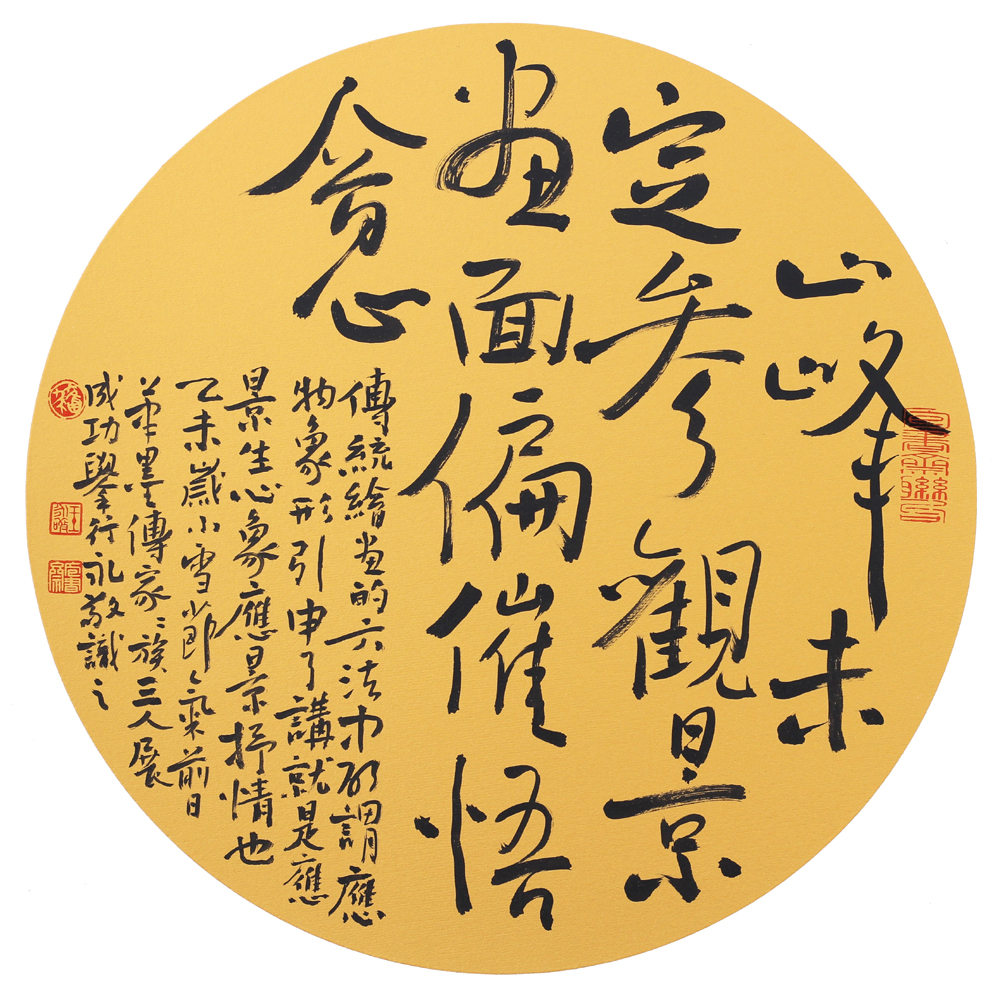 山峰未
定參觀景
畫面偏催悟
會心
傳統繪畫的六法中所謂應
物象形引申了講就是應
景生心象應景抒情也
乙未歲小雪節氣前日
筆墨傳家〻族三人展
成功舉行永敬識之